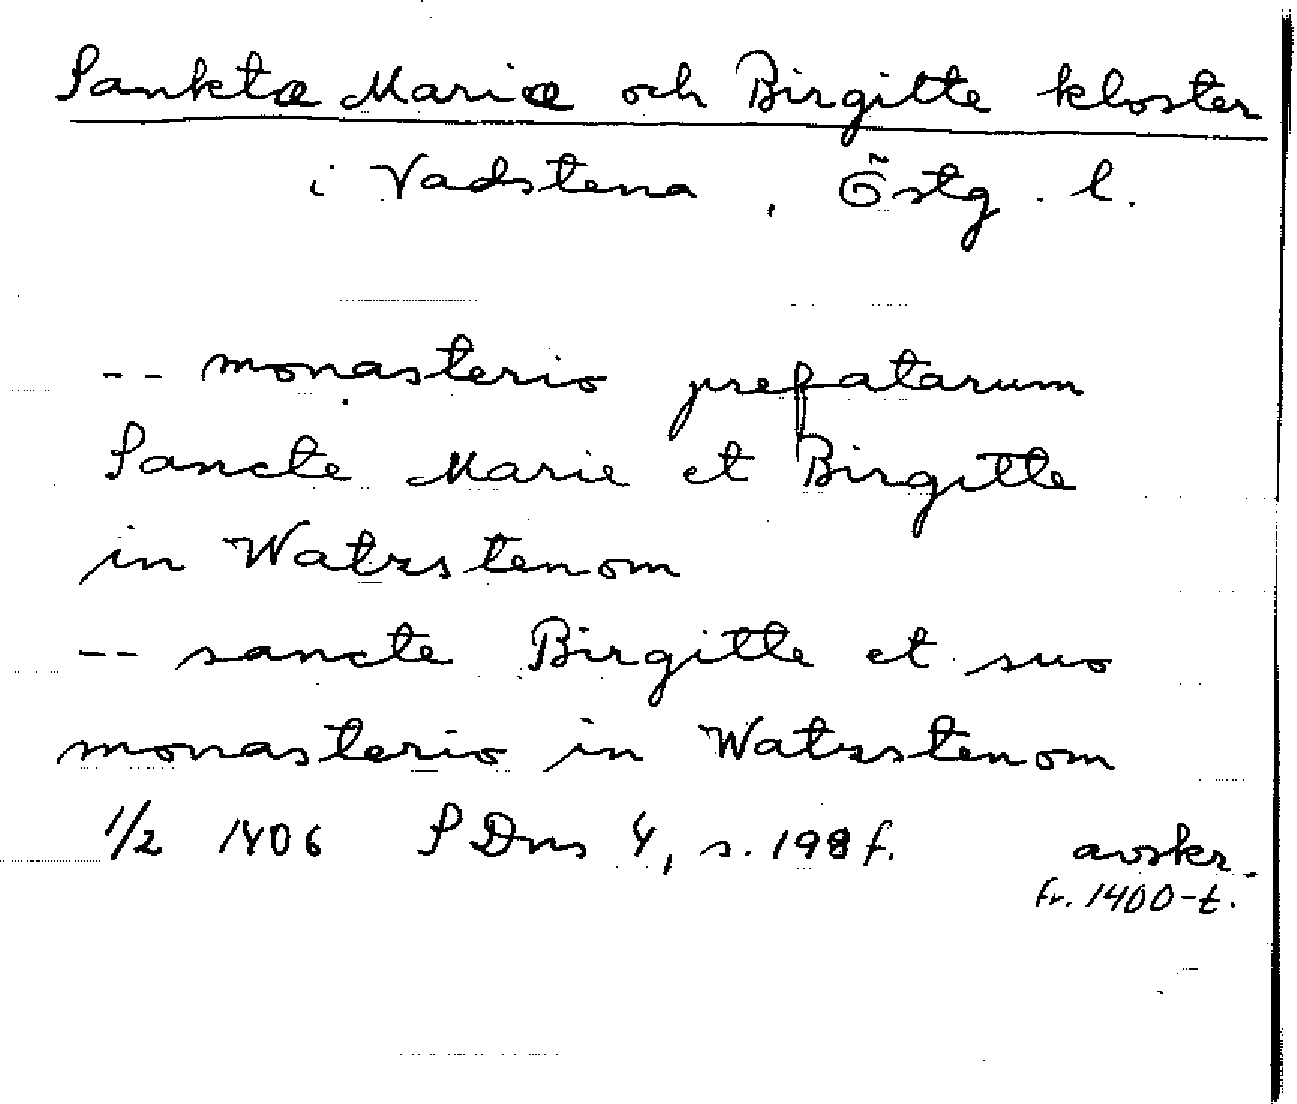 Sankta Maria och Birgitte kloster
i Vadstena, Östg. l.
-- monasterio prefatarum
Sancte Marie et Birgitte
in Watzstenom
-- sancte Birgitte et suo
monasterio in Watzstenom
1/2 1406 SDns 4, s. 198 f. avskr.
fr. 1400-t.